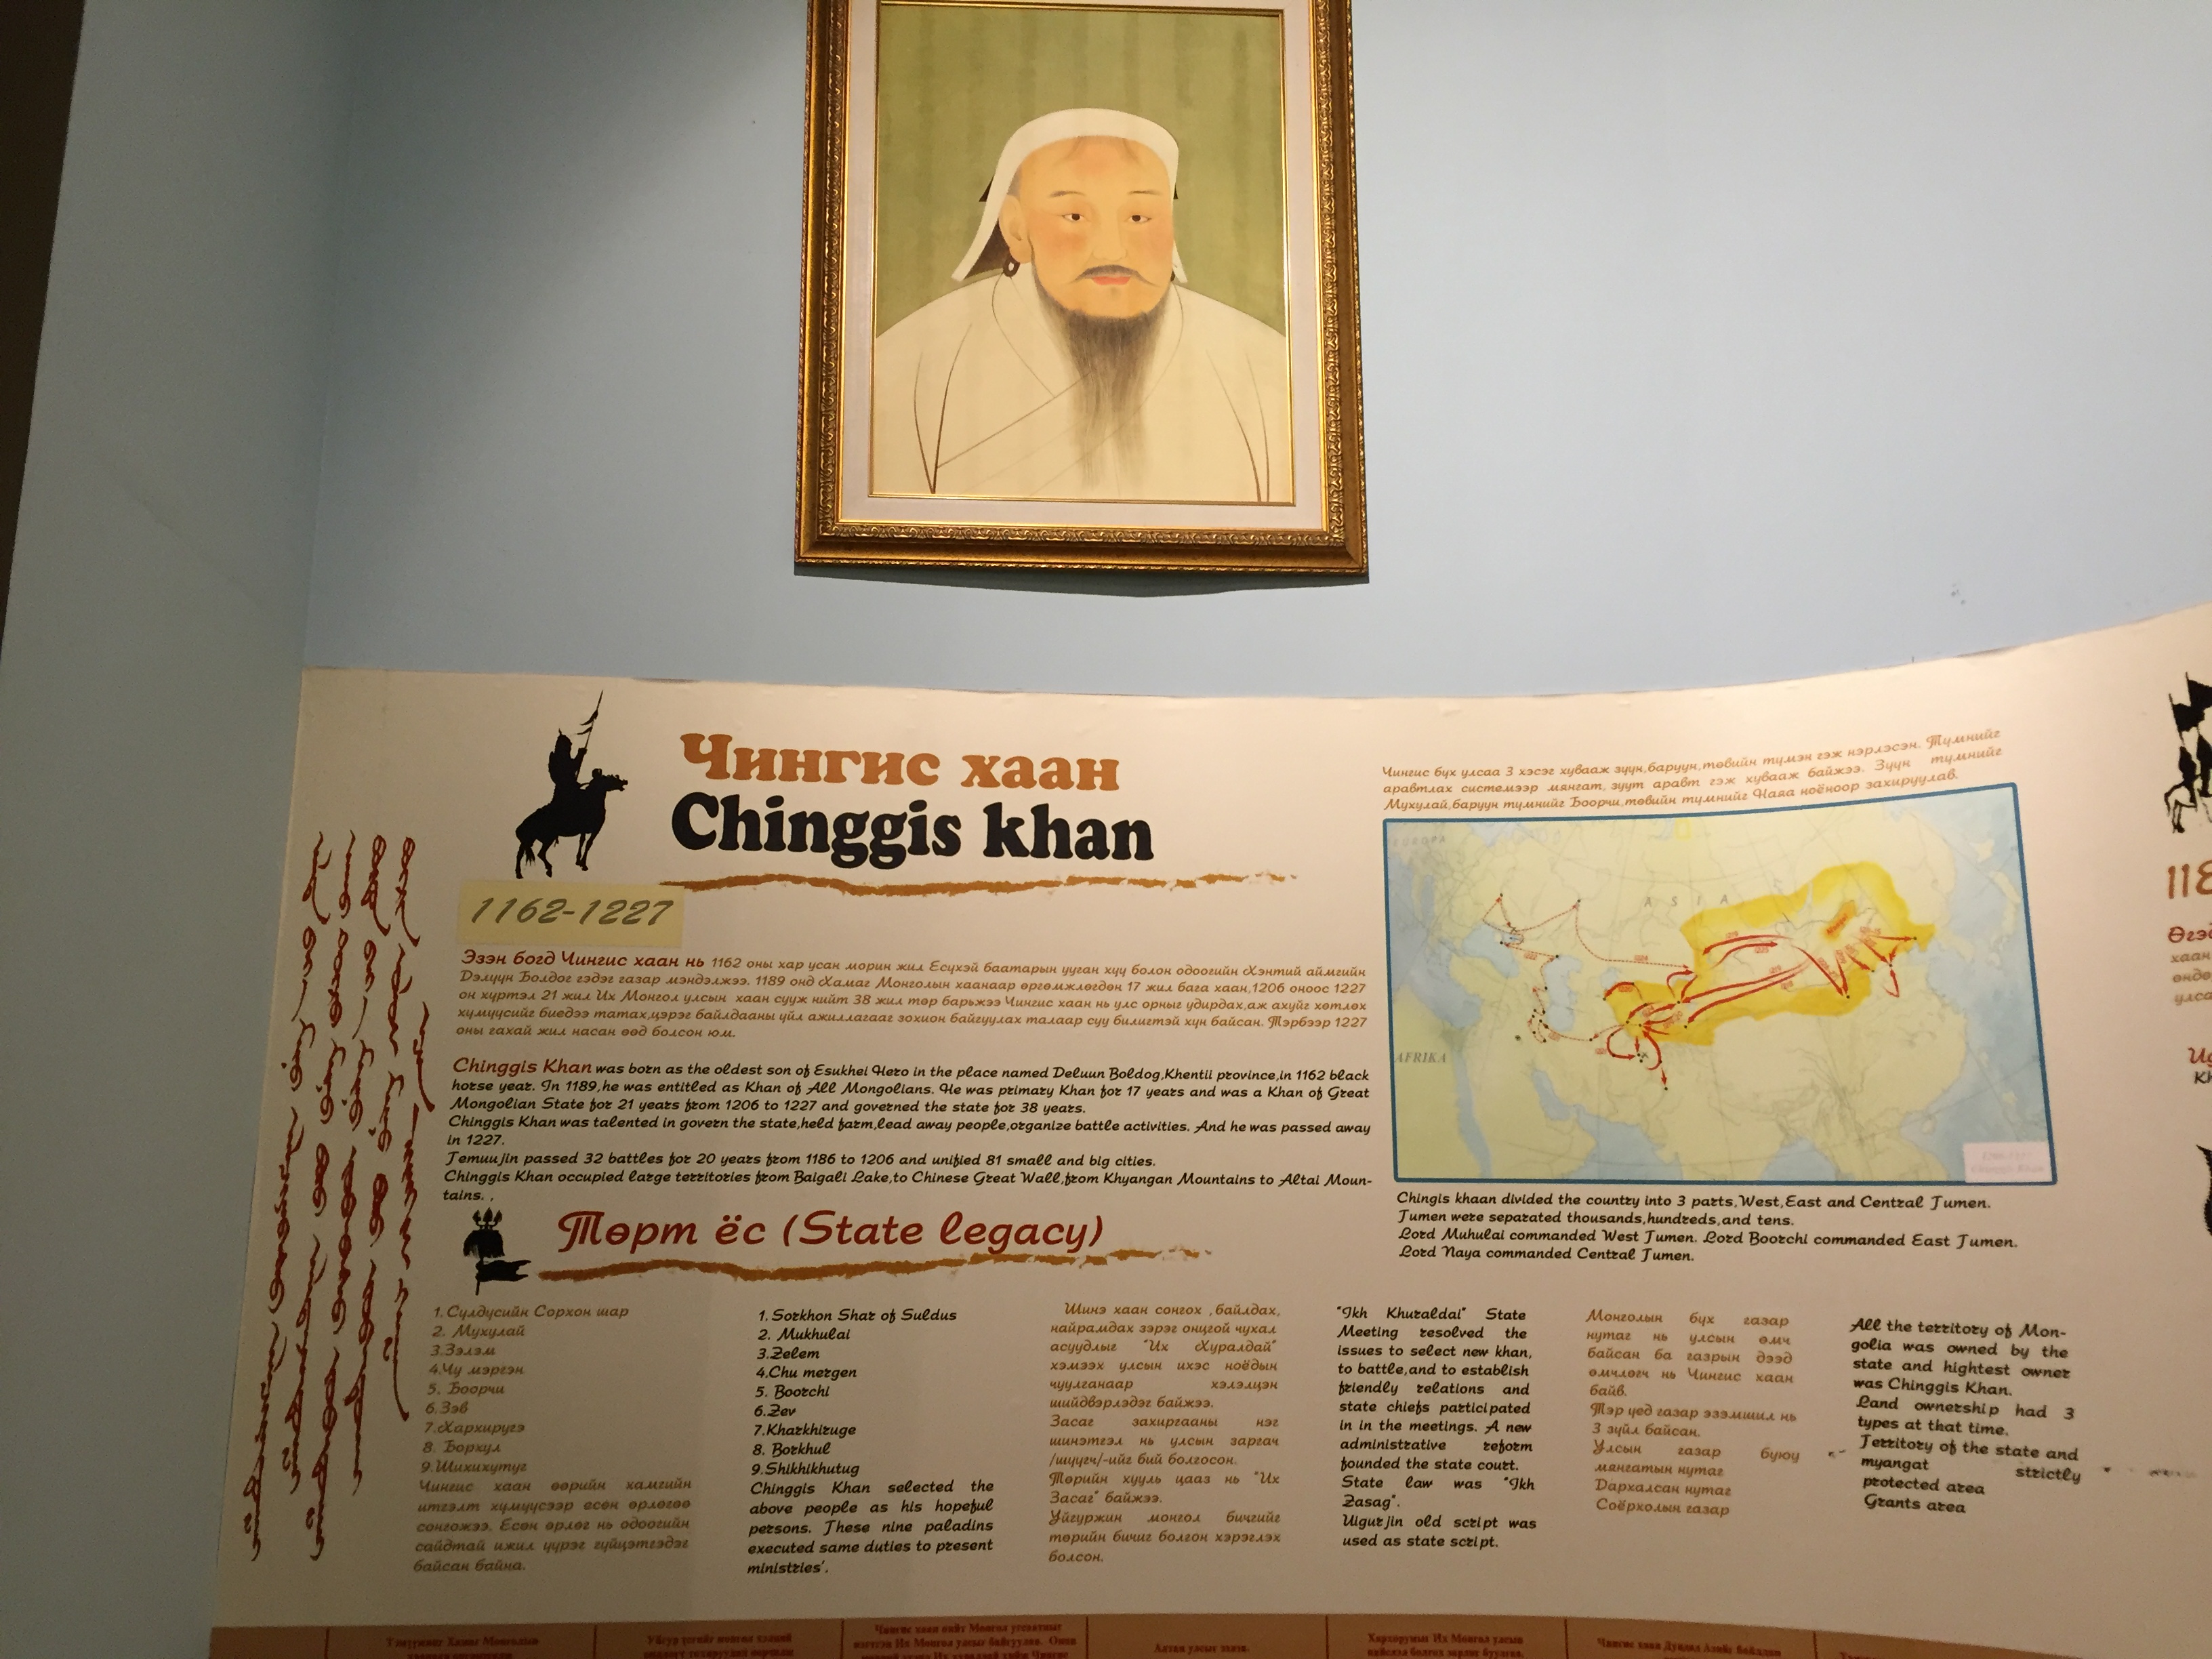 Чингис хаан
Chinggis khan
1162-1227
Эзэн богд Чингис хаан нь 1162 оны хар усан морин жил Есүхэй баатарын ууган хүү болон одоогийн Хэнтий аймгийн
Дэлүүн Болдог гэдэг газар мэндэлжээ. 1189 онд Хамаг Монголын хаанаар өргөмжлөгдөн 17 жил бага хаан,1206 оноос 1227
он хүртэл 21 жил Их Монгол улсын хаан сууж нийт 38 жил төр барьжээ Чингис хаан нь улс орныг удирдах,аж ахуйг хөтлөх
хүмүүсийг биедээ татах,цэрэг байлдааны үйл ажиллагааг зохион байгуулах талаар суу билигтэй хүн байсан. Тэрбээр 1227
оны гахай жил насан өөд болсон юм.
Chinggis Khan was born as the oldest son of Esukhei Hero in the place named Deluun Boldog,Khentii province,in 1162 black
horse year. In 1189,he was entitled as Khan of All Mongolians. He was primary Khan for 17 years and was a Khan of Great
Mongolian State for 21 years from 1206 to 1227 and governed the state for 38 years.
Chinggis Khan was talented in govern the state,held farm,lead away people,organize battle activities. And he was passed away
in 1227.
Temuujin passed 32 battles for 20 years from 1186 to 1206 and unified 81 small and big cities.
Chinggis Khan occupied large territories from Baigali Lake,to Chinese Great Wall,from Khyangan Mountains to Altai Moun-
tains. ,
Чингис бүх улсаа 3 хэсэг хувааж зүүн,баруун,төвийн түмэн гэж нэрлэсэн. Түмнийг
аравтлах системээр мянгат, зуут аравт гэж хувааж байжээ. Зүүн түмнийг
Мухулай,баруун түмнийг Боорчи,төвийн түмнийг Наяа ноёноор захируулав.
ASIA
AFRIKA
Chingis khaan divided the country into 3 parts,West,East and Central Tumen.
Tumen were separated thousands,hundreds,and tens.
Lord Muhulai commanded West Tumen. Lord Boorchi commanded East Tumen.
Lord Naya commanded Central Tumen.
Төрт ёс (State legacy)
1. Сулдусийн Сорхон шар
2. Мухулай
3.Зэлэм
4.Чу мэргэн
5. Боорчи
6.Зэв
7.Хархиругэ
8. Борхул
9.Шихихутуг
Чингис хаан өөрийн хамгийн
итгэлт хүмүүсээр есөн өрлөгөө
сонгожээ. Есөн өрлөг нь одоогийн
сайдтай ижил үүрэг гүйцэтгэдэг
байсан байна.
1. Sorkhon Shar of Suldus
2. Mukhulai
3.Zelem
4.Chu mergen
5. Boorchi
6.Zev
7.Kharkhiruge
8. Borkhul
9.Shikhikhutug
Chinggis Khan selected the
above people as his hopeful
persons. These nine paladins
executed same duties to present
ministries'.
Шинэ хаан сонгох , байлдах,
найрамдах зэрэг онцгой чухал
асуудлыг "Их Хуралдай"
хэмээх улсын ихэс ноёдын
чуулганаар хэлэлцэн
шийдвэрлэдэг байжээ.
Засаг захиргааны нэг
шинэтгэл нь улсын заргач
/шүүгч/-ийг бий болгосон.
Төрийн хууль цааз нь "Их
Засаг" байжээ.
Уйгуржин монгол бичгийг
төрийн бичиг болгон хэрэглэх
болсон.
"Ikh Khuraldai" State
Meeting resolved the
issues to select new khan,
to battle,and to establish
friendly relations and
state chiefs participated
in in the meetings. A new
administrative reform
founded the state court.
State law was "Ikh
Zasag".
Uigurjin old script was
used as state script.
Монголын бүх газар
нутаг нь улсын өмч
байсан ба газрын дээд
өмчлөгч нь Чингис хаан
байв.
Тэр үед газар эзэмшил нь
3 зүйл байсан.
Улсын газар буюу
мянгатын нутаг
Дархалсан нутаг
Соёрхолын газар
All the territory of Mon-
golia was owned by the
state and hightest owner
was Chinggis Khan.
Land ownership had 3
types at that time.
Territory of the state and
myangat strictly
protected area
Grants area
Алтан улсыг эзлэв.